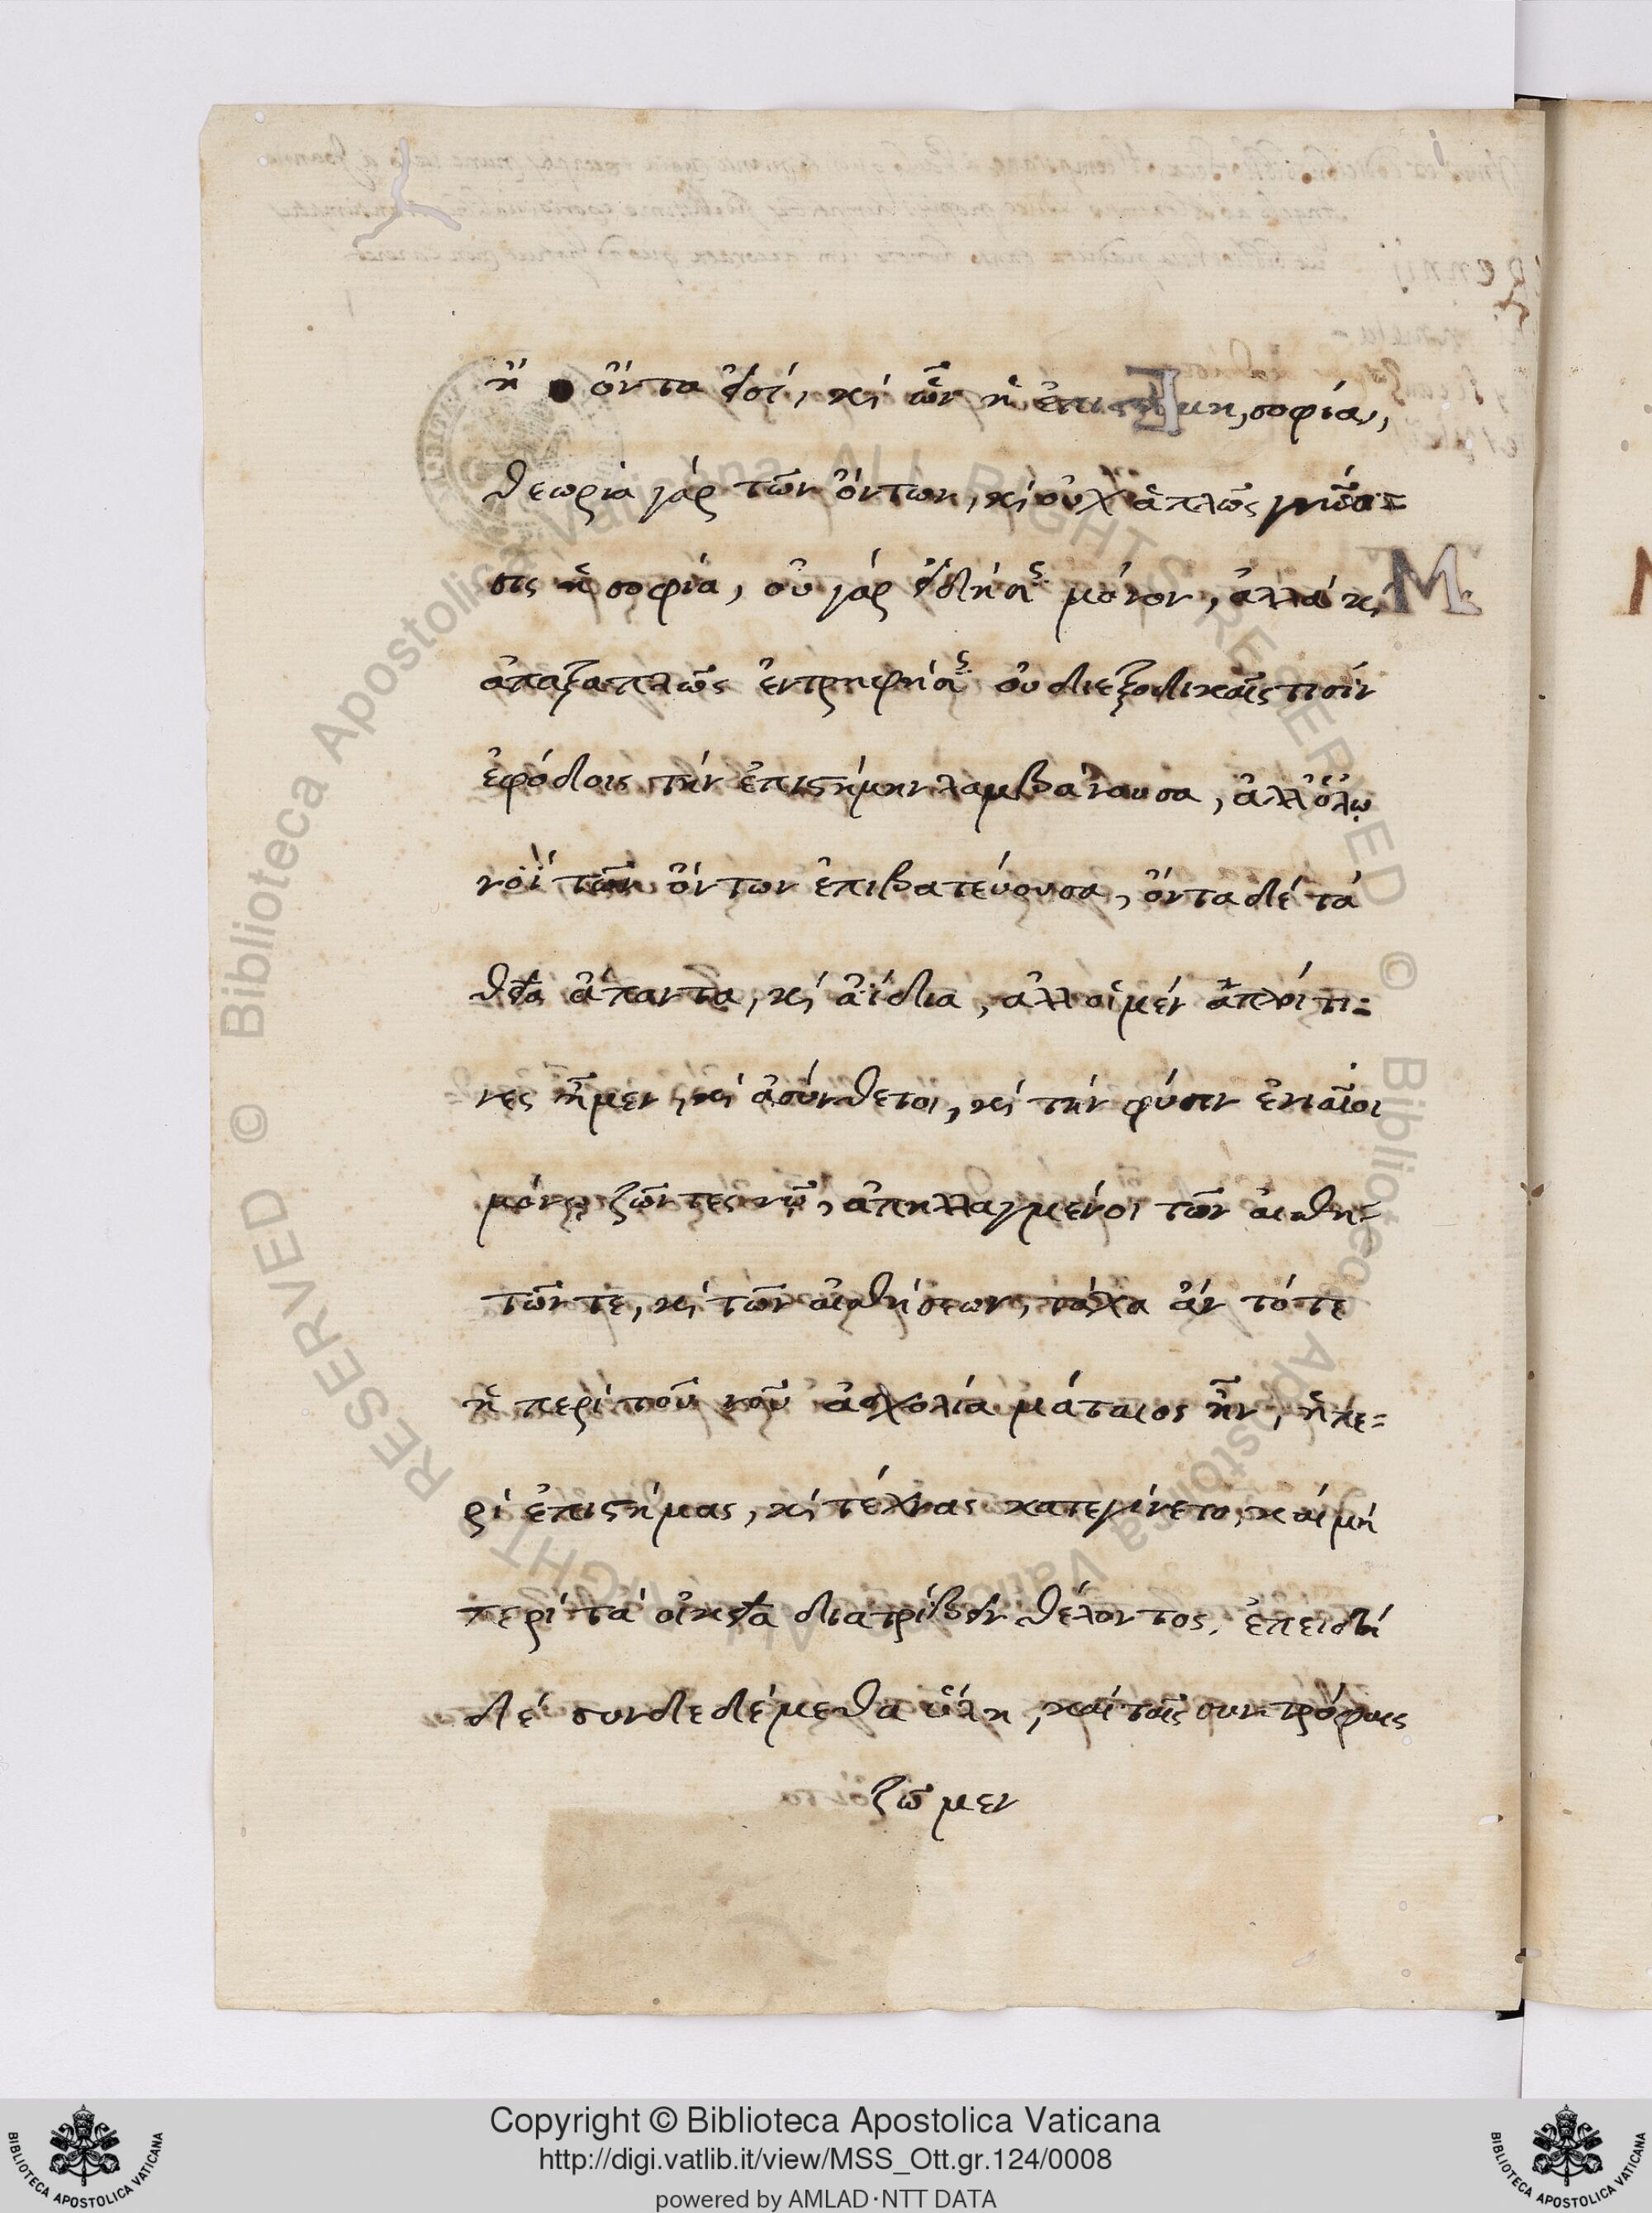 ἢ ὄντα εἰσί, κὶ ὧν ἡ ἐπιστήμη, σοφία,
θεωρία γάρ τῶν ὄντων, κὶ οὐχ ἁπλῶς γνῶ=
σις ἡ σοφία, οὐ γάρ εἴδησις μόνον, ἀλλά κὶ
ἁπαξαπλῶς ἐντρηφήσις οὐ διεξοδικαῖς τισίν
ἐφόδοις τήν ἐπιστήμην λαμβάνουσα, ἀλλ ὅλῳ
νοΐ τῶν ὄντων ἐπιβατεύουσα, ὄντα δέ τά
θεῖα ἅπαντα, κὶ ἀΐδια, ἀλλ οἱ μέν ἁπλοί τι=
νες ἦμεν, κὶ ἀσύνθετοι, κὶ τήν φύσιν ἑνιαῖοι
μόνῳ ζῶντες νῷ, ἀπηλλαγμένοι τῶν αἰσθη=
τῶν τε, κὶ τῶν αἰσθήσεων, τάχα ἄν τό τε
ἡ περί τοῦ νοῦ ἀσχολία μάταιος ἦν, ἡ πε=
ρί ἐπιστήμας, κὶ τέχνας κατεγίνετο, καί μή
περί τά οἰκεῖα διατρίβειν θέλοντος, ἐπειδή
δέ συνδεδέμεθα ὕλη, καί ταῖς συντρόφοις
ζῶμεν
M
Copyright © Biblioteca Apostolica Vaticana
http://digi.vatlib.it/view/MSS_Ott.gr.124/0008
powered by AMLAD·NTT DATA
BIBLIOTECA APOSTOLICA VATICANA
BIBLIOTECA APOSTOLICA VATICANA
© Biblioteca Apostolica Vaticana ALL RIGHTS RESERVED © Biblioteca Apostolica Vaticana ALL RIGHTS RESERVED